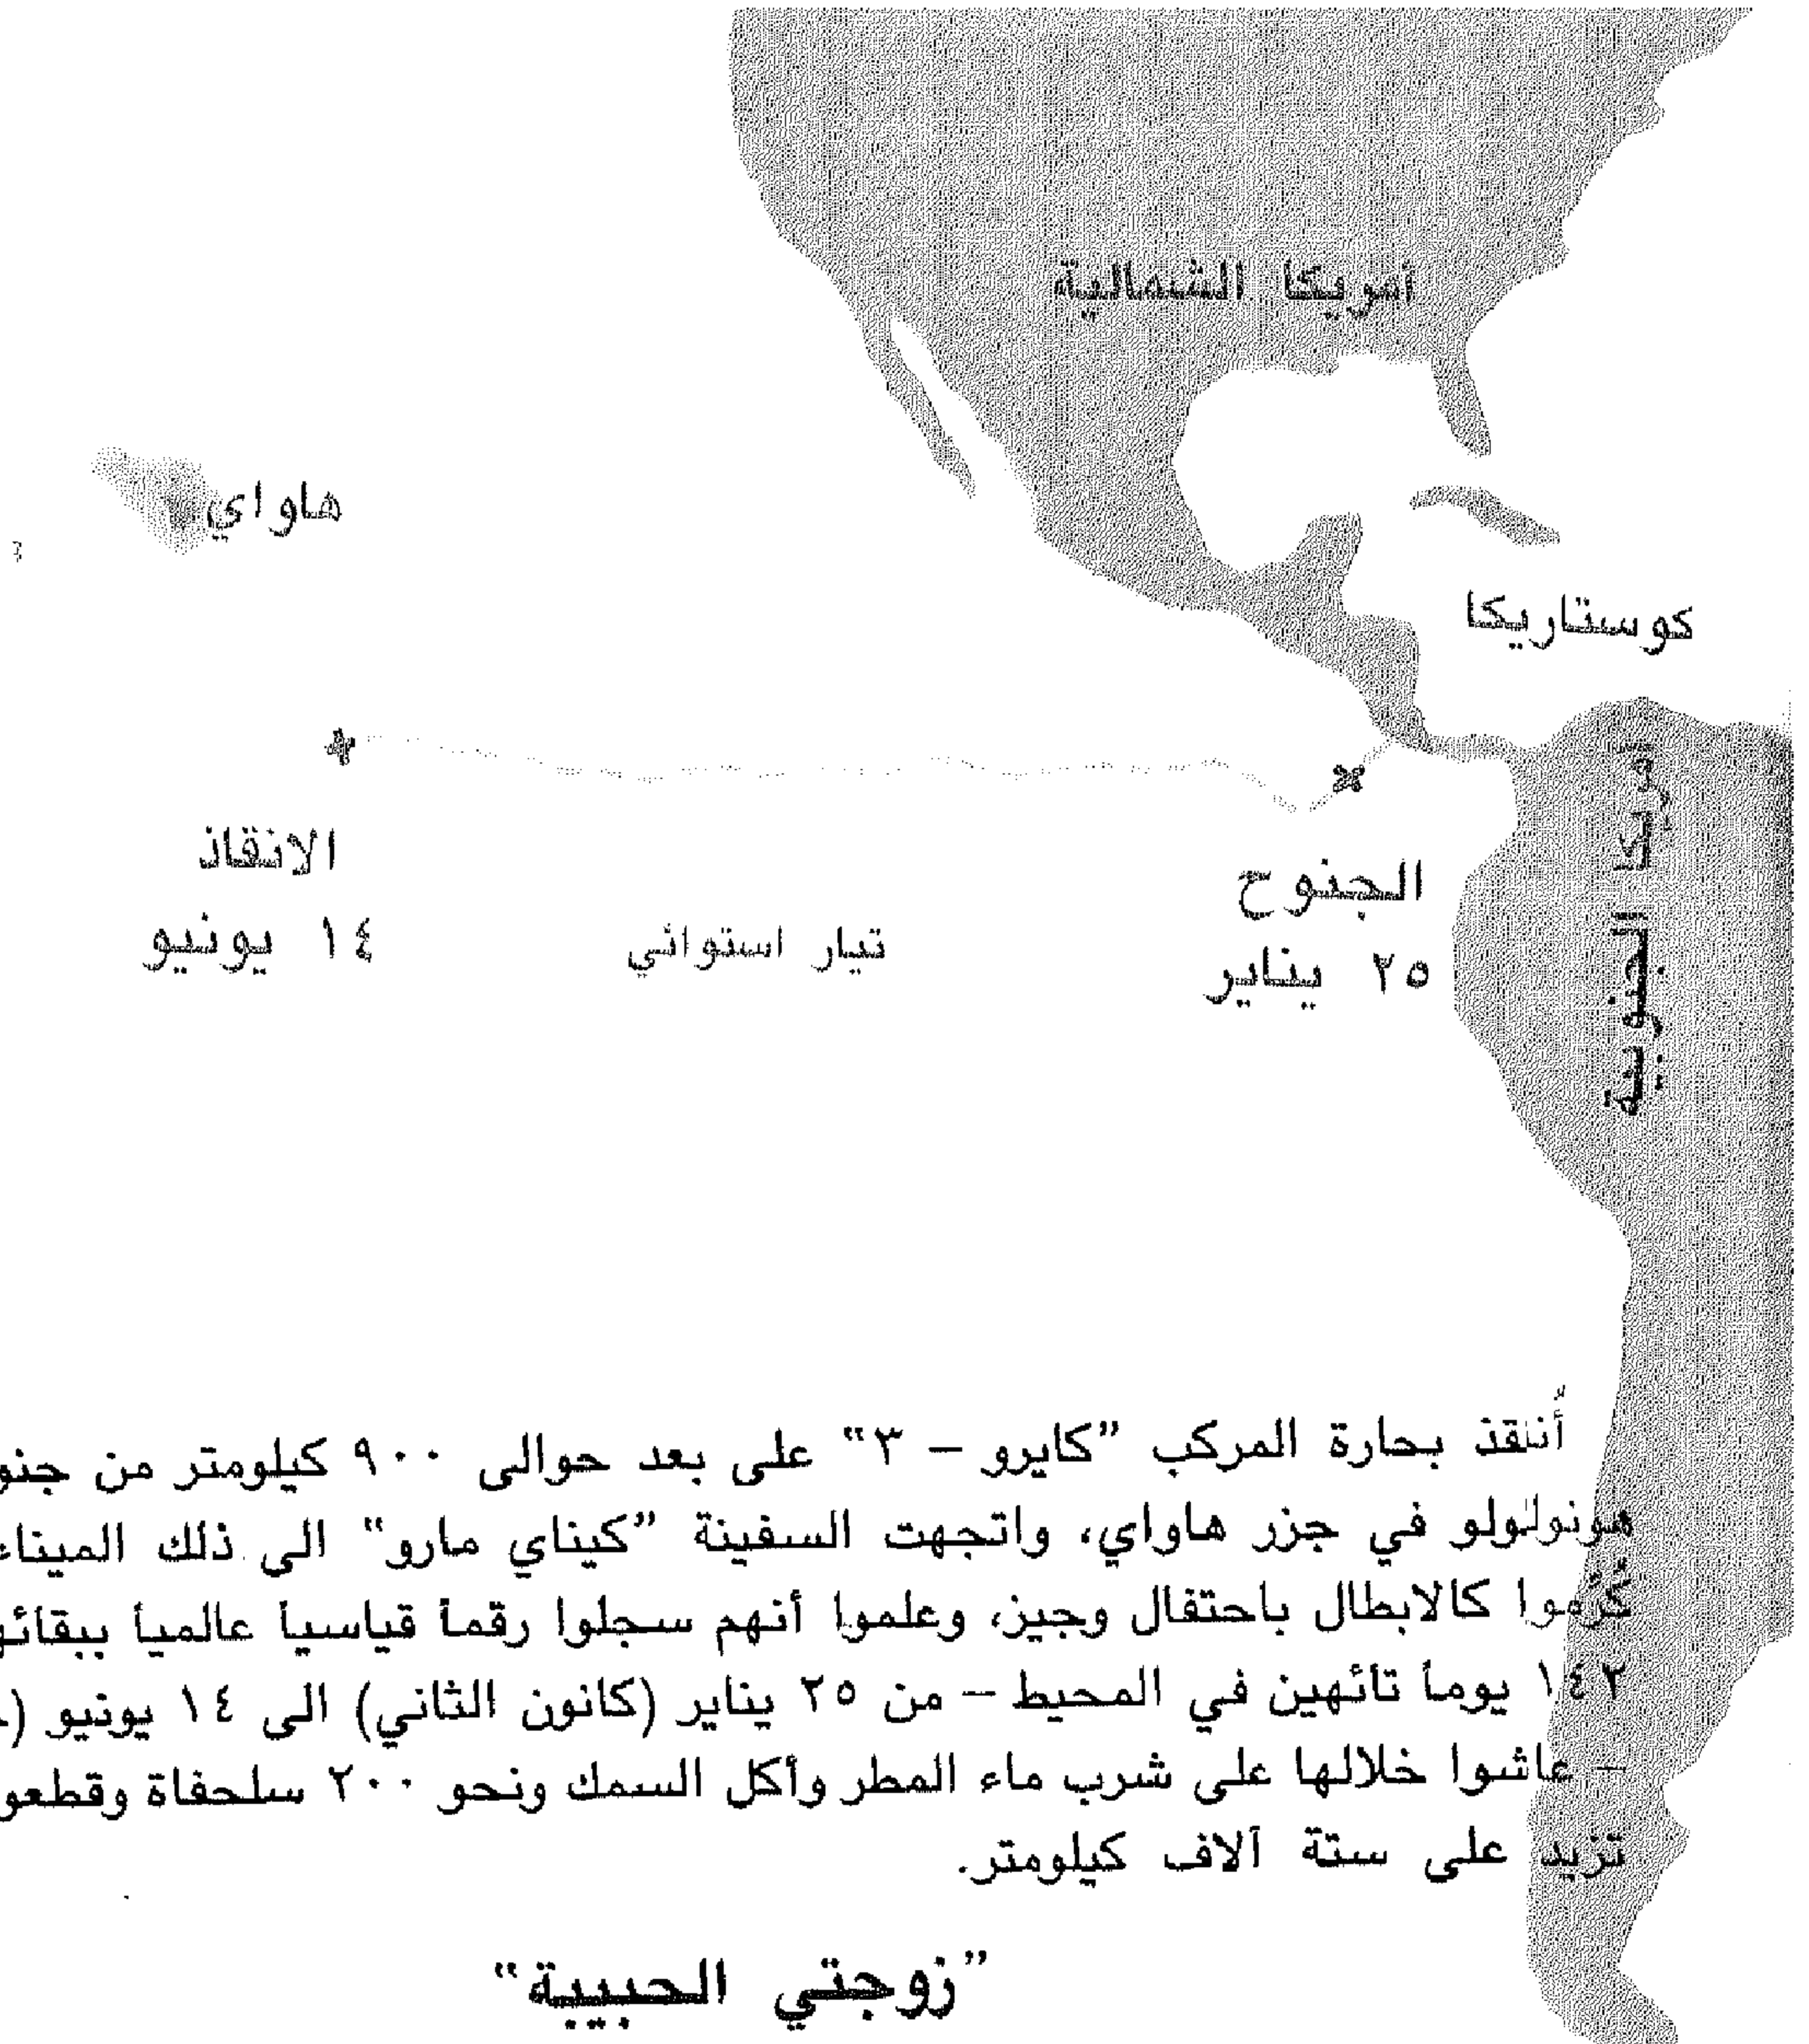 أمريكا الشمالية
هاواي
كوستاريكا
أمريكا الجنوبية
الانقاذ
١٤ يونيو
تيار استوائي
الجنوح
٢٥ يناير
أُنقذ بحارة المركب ”كايرو – ٣“ على بعد حوالى ٩٠٠ كيلومتر من
هونولولو في جزر هاواي، واتجهت السفينة ”كيناي مارو“ الى ذلك الميناء
كُرِّموا كالابطال باحتفال وجيز، وعلموا أنهم سجلوا رقماً قياسياً عالمياً
١٤٢ يوماً تائهين في المحيط – من ٢٥ يناير (كانون الثاني) الى ١٤ يونيو (
– عاشوا خلالها على شرب ماء المطر وأكل السمك ونحو ٢٠٠ سلحفاة
تزيد على ستة آلاف كيلومتر.
”زوجتي الحبيبة“